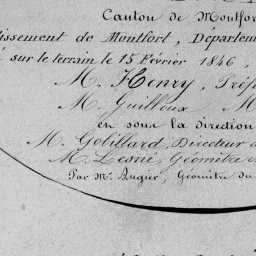 Canton de Montfor
issement de Montfort, Départem
sur le terrain le 15 Février 1846,
M. Henry, Préf
M. Guilloux M
en sous la direction
M. Gobillard, Directeur d
M. Lesné, Géomètre
Par Mr. Augier, Géomètre du